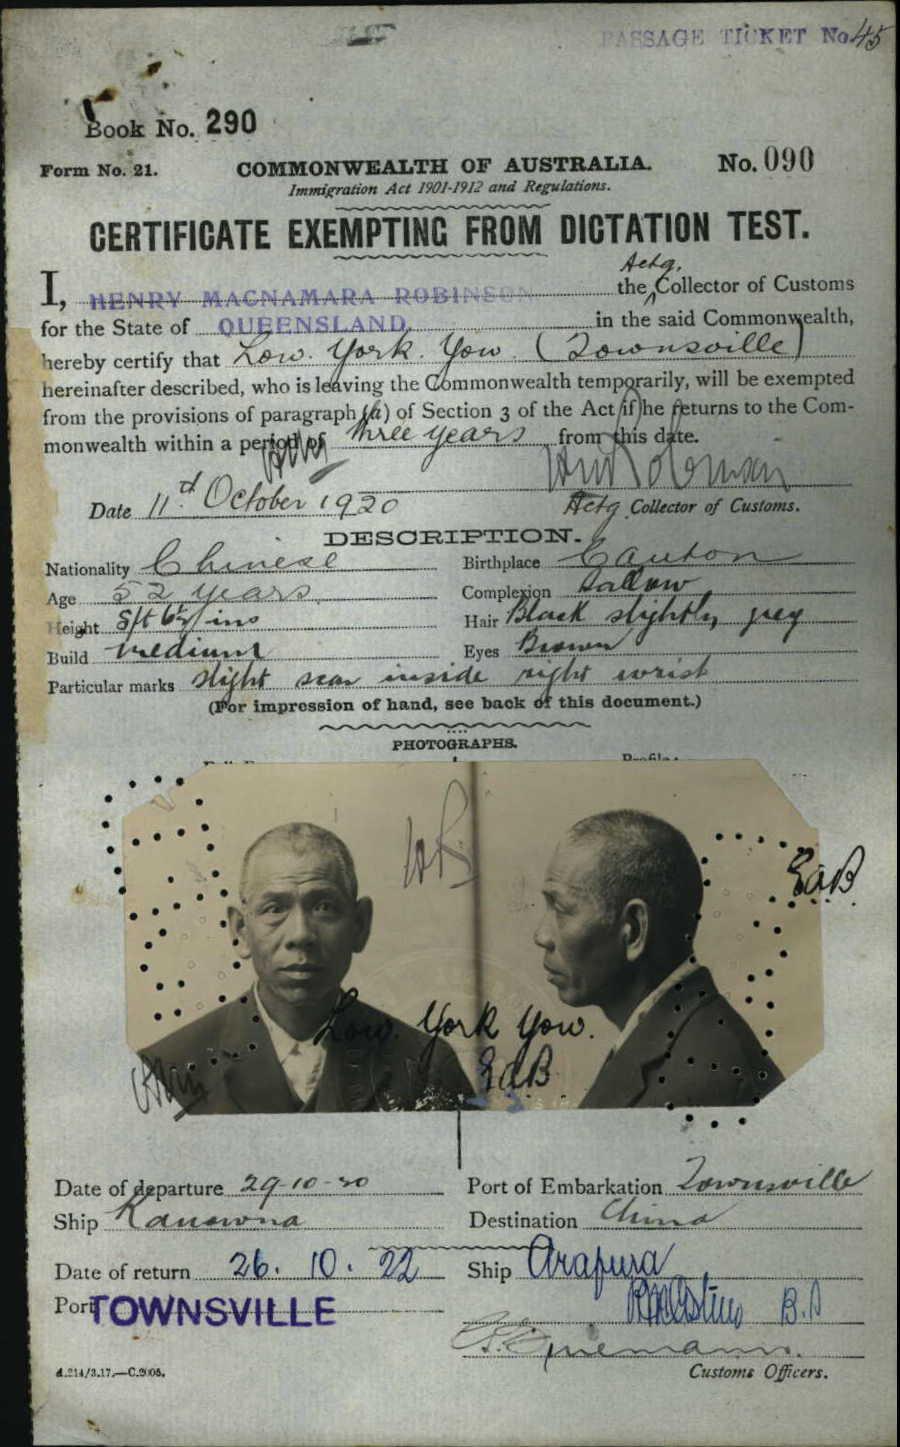 PASSAGE TICKET No. 45
Book No. 290
Form No. 21. COMMONWEALTH OF AUSTRALIA. No. 090
Immigration Act 1901-1912 and Regulations.
CERTIFICATE EXEMPTING FROM DICTATION TEST.
Actg.
I, HENRY MACNAMARA ROBINSON the Collector of Customs
for the State of QUEENSLAND, in the said Commonwealth,
hereby certify that Low. York. Yow. (Townsville)
hereinafter described, who is leaving the Commonwealth temporarily, will be exempted
from the provisions of paragraph (a) of Section 3 of the Act if he returns to the Com-
monwealth within a period of three years from this date.
Date 11th October 1920 Actg Collector of Customs.
DESCRIPTION.
Nationality Chinese Birthplace Canton
Age 52 years Complexion Sallow
Height 5ft 6½ ins Hair Black slightly grey
Build medium Eyes Brown
Particular marks slight scar inside right wrist
(For impression of hand, see back of this document.)
PHOTOGRAPHS.
Profile:
HR
EaB
Low. York Yow.
EaB
Date of departure 29-10-20 Port of Embarkation Townsville
Ship Kanowna Destination China
Date of return 26. 10. 22 Ship Arafura
Port TOWNSVILLE
Customs Officers.
A.214/3.17.—C.2005.